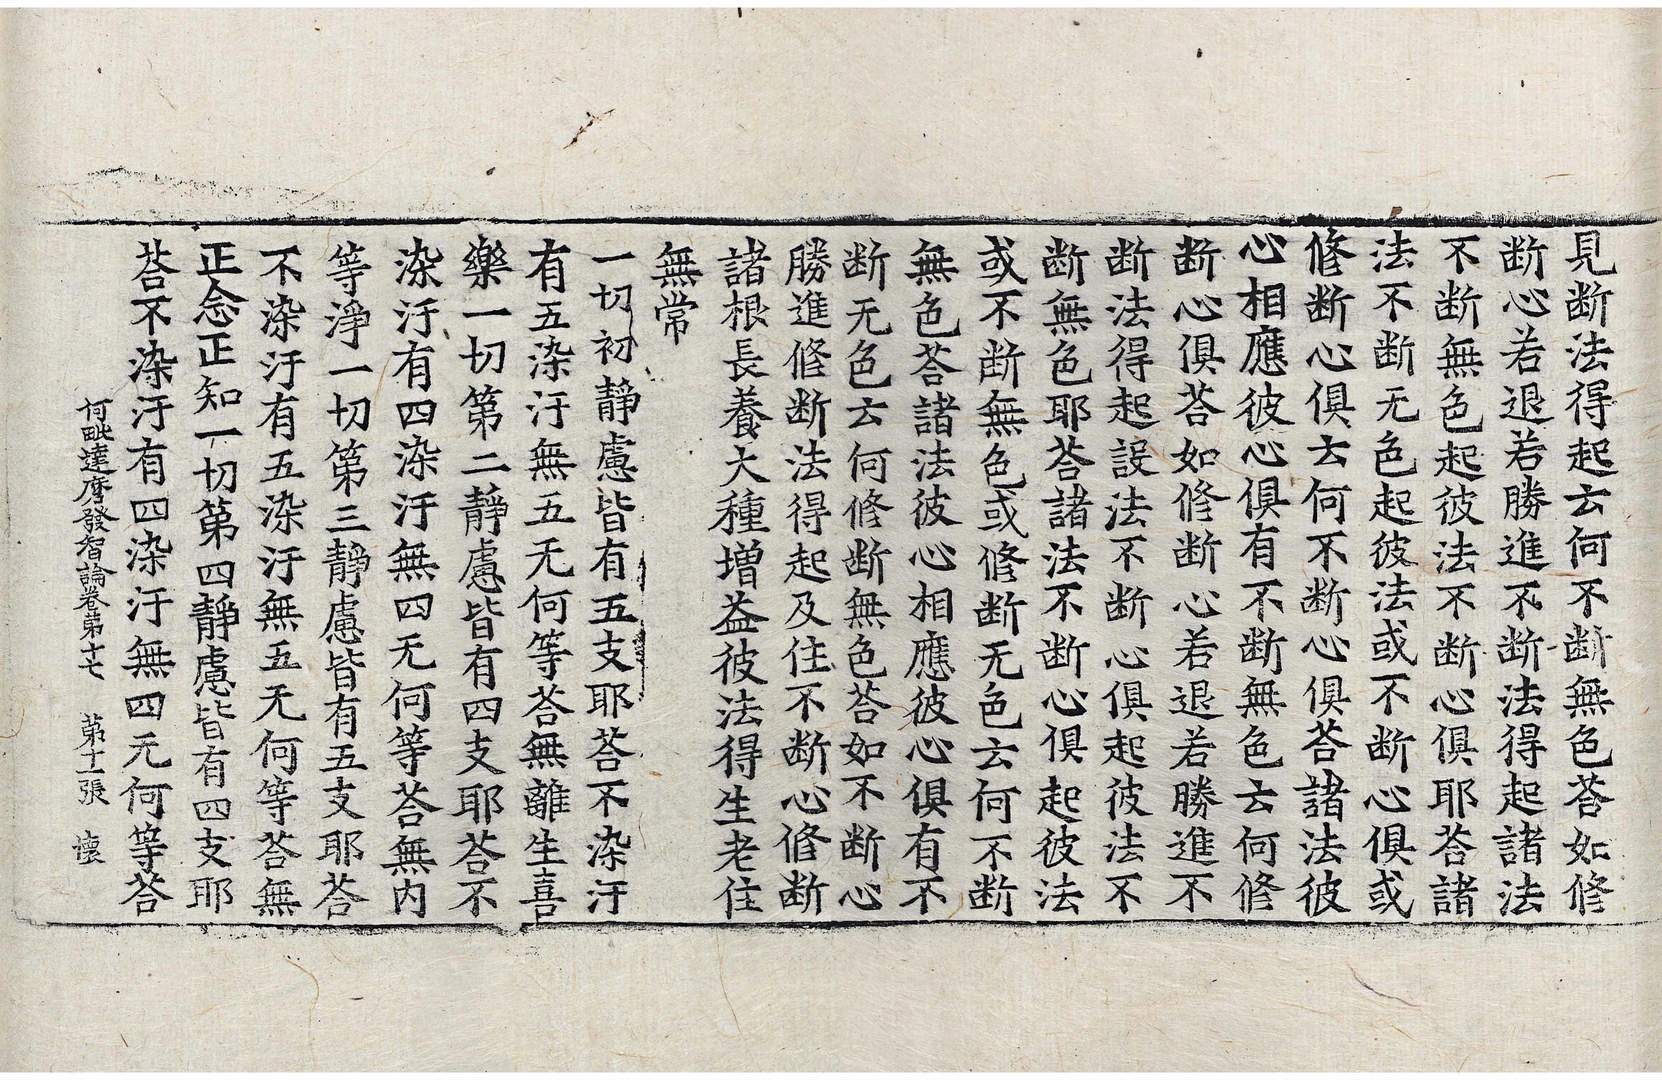 見断法得起云何不断無色荅如修
断心若退若勝進不断法得起諸法
不断無色起彼法不断心俱耶荅諸
法不断无色起彼法或不断心俱或
修断心俱云何不断心俱荅諸法彼
心相應彼心俱有不断無色云何修
断心俱荅如修断心若退若勝進不
断法得起設法不断心俱起彼法不
断無色耶荅諸法不断心俱起彼法
或不断無色或修断无色云何不断
無色荅諸法彼心相應彼心俱有不
断无色云何修断無色荅如不断心
勝進修断法得起及住不断心修断
諸根長養大種增益彼法得生老住
無常
一切初靜慮皆有五支耶荅不染汙
有五染汙無五无何等荅無離生喜
樂一切第二靜慮皆有四支耶荅不
染汙有四染汙無四无何等荅無内
等淨一切第三靜慮皆有五支耶荅
不染汙有五染汙無五无何等荅無
正念正知一切第四靜慮皆有四支耶
荅不染汙有四染汙無四无何等荅
阿毗達磨發智論卷第十七 第十一張 懷